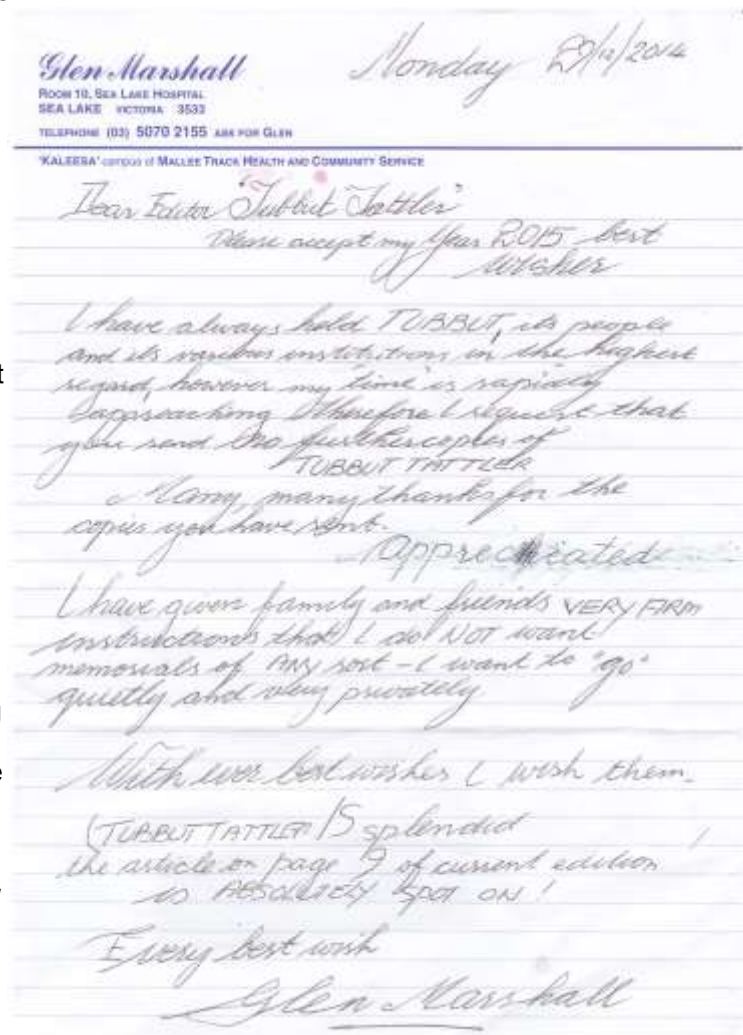 Glen Marshall
Monday 29/12/2014
ROOM 10, SEA LAKE HOSPITAL
SEA LAKE VICTORIA 3533
TELEPHONE (03) 5070 2155 ASK FOR GLEN
'KALEESA' campus of MALLEE TRACK HEALTH AND COMMUNITY SERVICE
Dear Editor "Tubbut Tattler"
Please accept my Year 2015 best
wishes
I have always held TUBBUT, its people
and its various institutions in the highest
regard, however my 'time' is rapidly
approaching therefore I request that
you send no further copies of
TUBBUT TATTLER
Many, many thanks for the
copies you have sent.
appreciated
I have given family and friends VERY FIRM
instructions that I do NOT want
memorials of ANY sort - I want to "go"
quietly and very privately
With ever best wishes I wish them.
(TUBBUT TATTLER) IS splendid
the article on page 9 of current edition
is ABSOLUTELY SPOT ON!
Every best wish
Glen Marshall